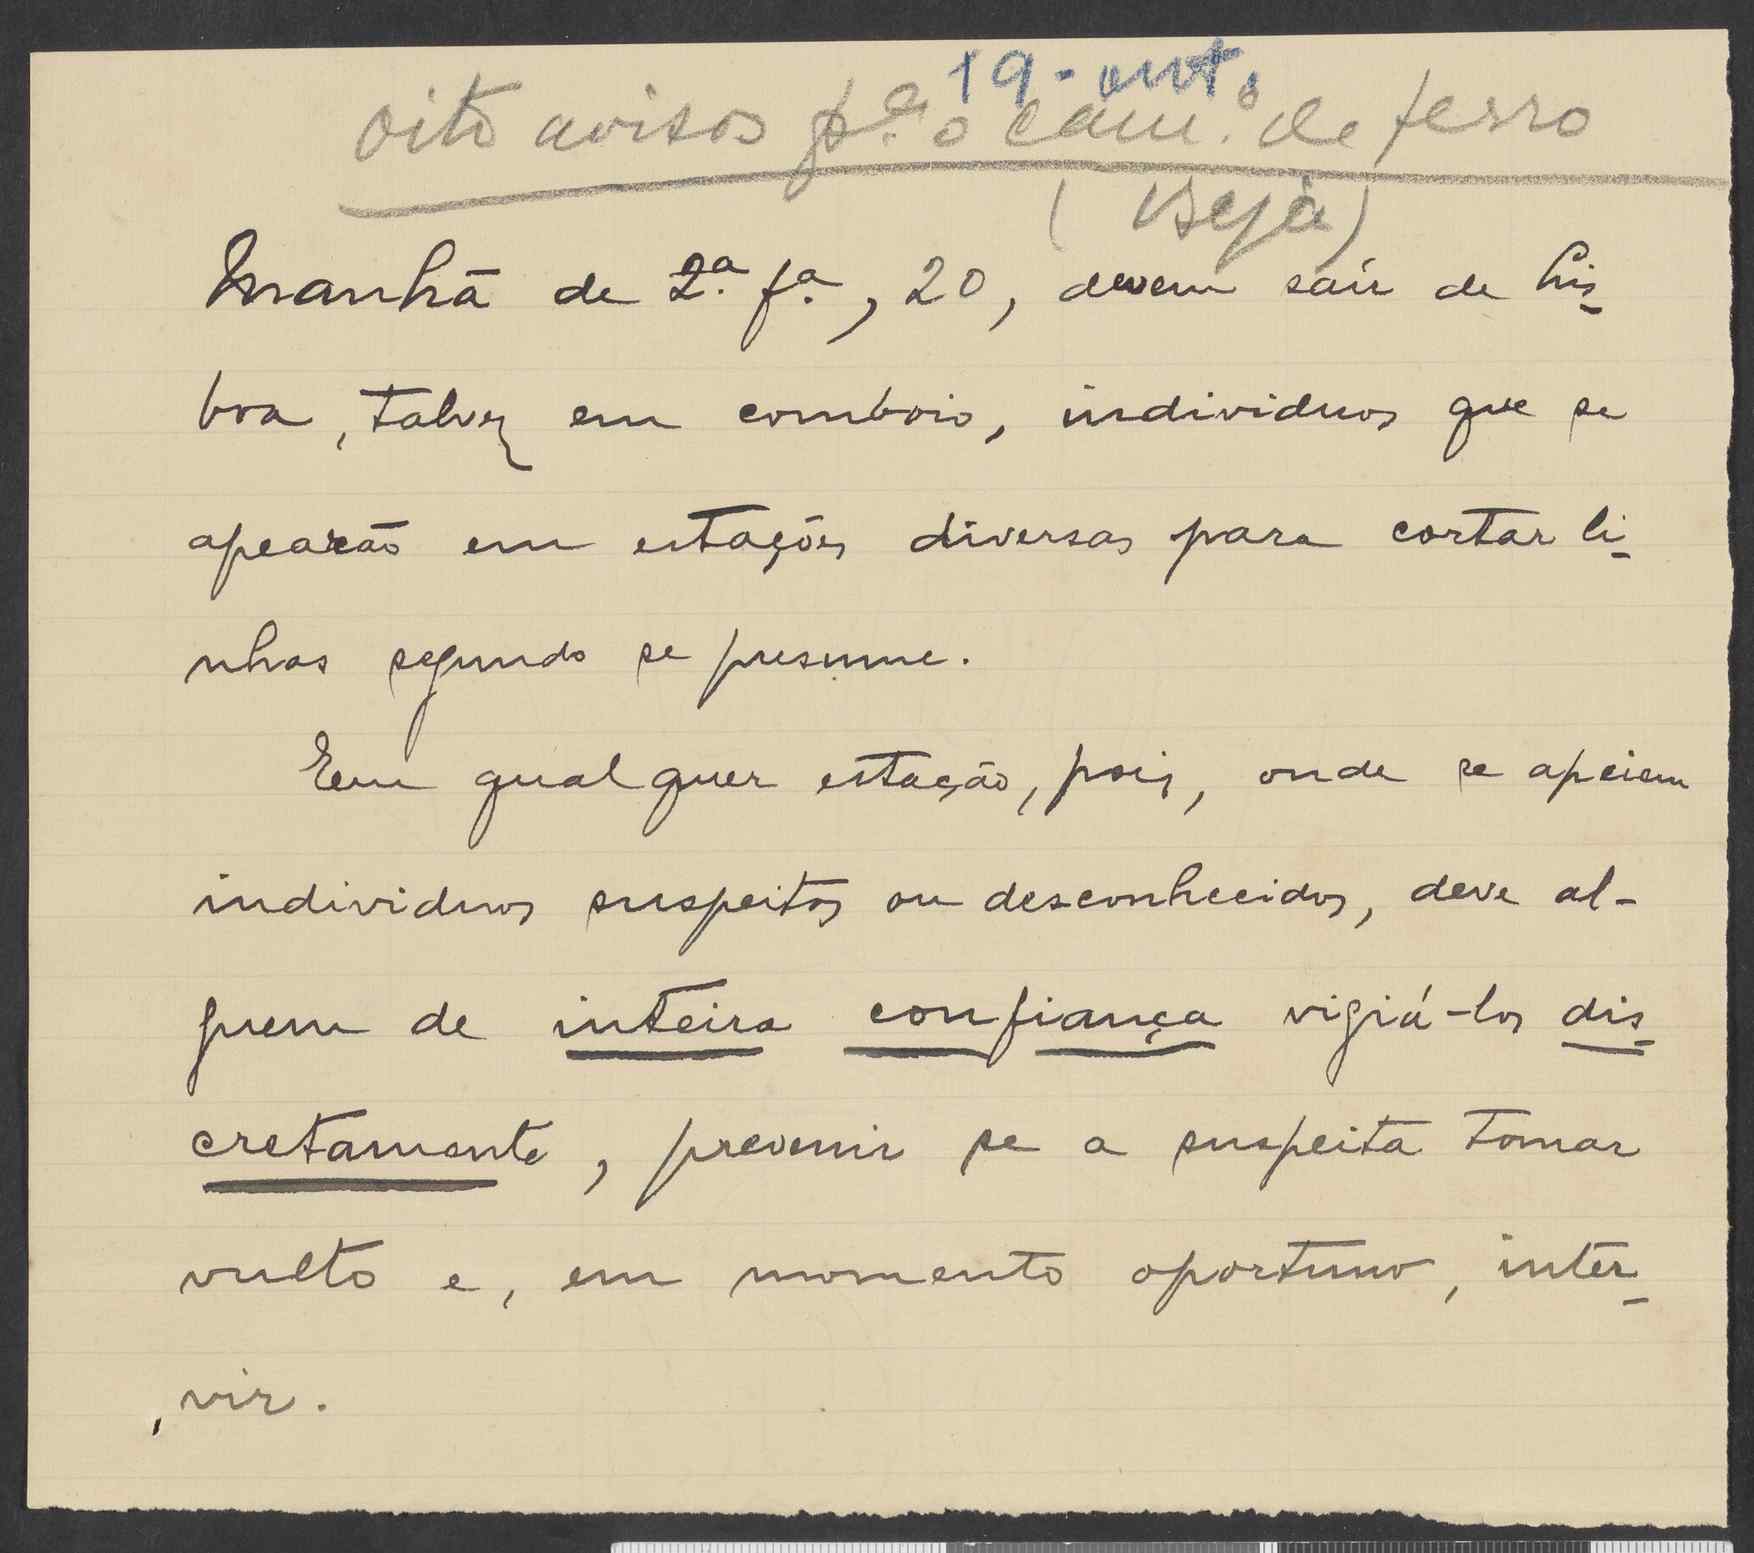 19 - out.
oito avisos p.ª o cam.º de ferro
(Beja)
Manhã de 2.ª f.ª, 20, devem sair de Lis-
boa, talvez em comboio, individuos que se
apearão em estações diversas para cortar li-
nhas segundo se presume.
Em qualquer estação, pois, onde se apeiem
individuos suspeitos ou desconhecidos, deve al-
guem de inteira confiança vigiá-los dis-
cretamente, prevenir se a suspeita tomar
vulto e, em momento oportuno, inter-
vir.